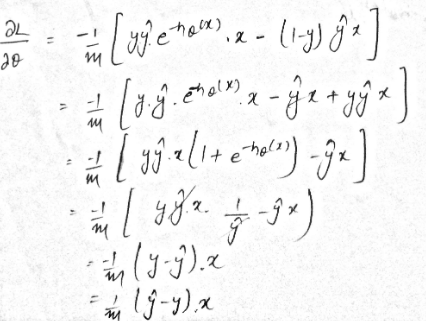 ∂L/∂θ = -1/m [ yŷ e^{-hθ(x)} . x - (1-y) ŷ x ]
= -1/m [ y.ŷ . e^{-hθ(x)} . x - ŷx + yŷ x ]
= -1/m [ yŷ.x (1 + e^{-hθ(x)}) - ŷx ]
= -1/m [ yŷ x. 1/ŷ - ŷx )
= -1/m (y-ŷ).x
= 1/m (ŷ-y).x